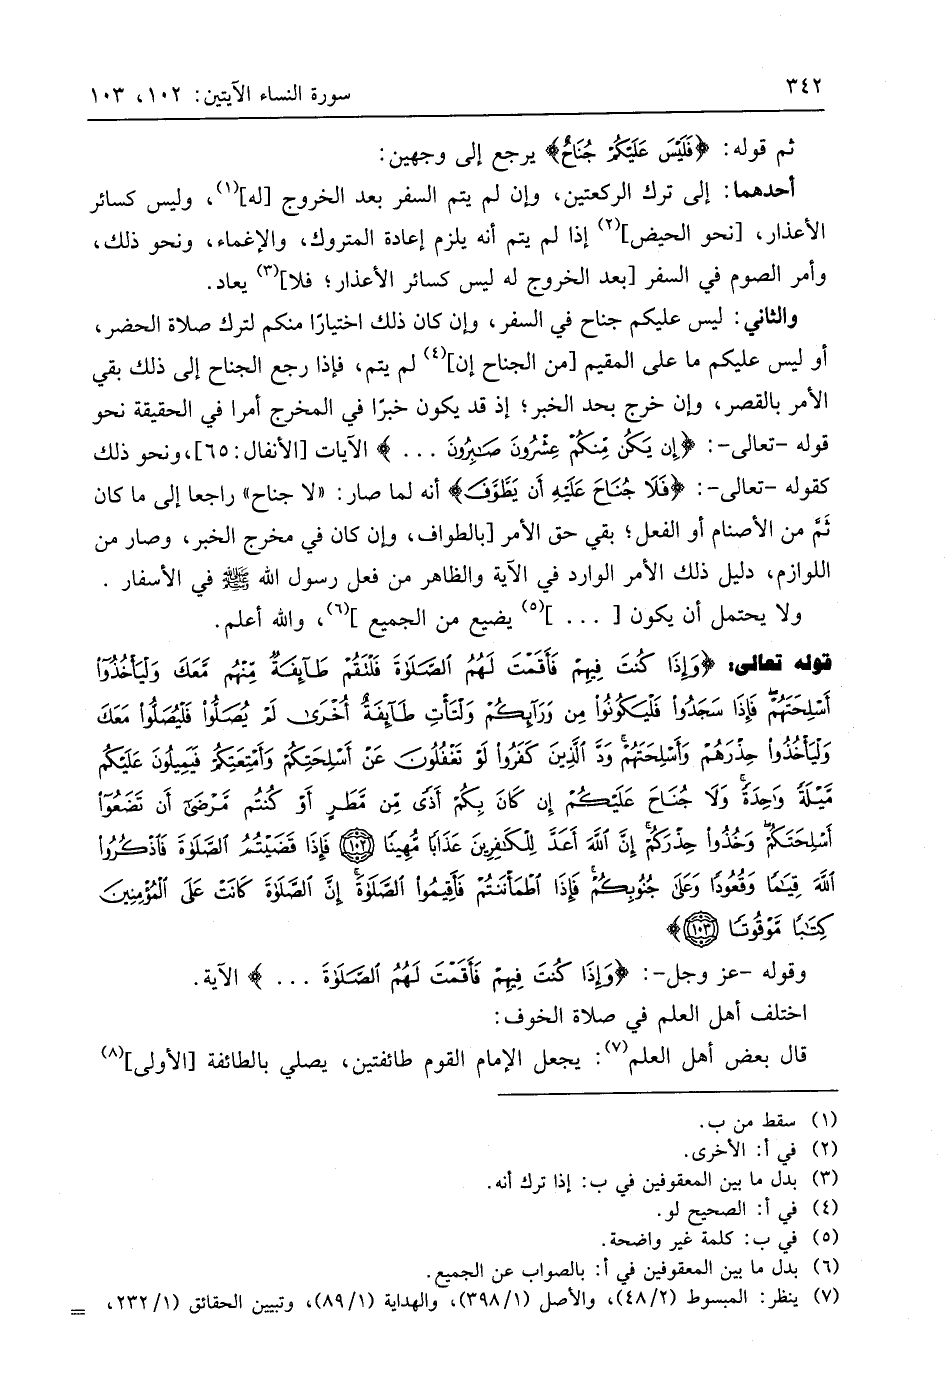 ٣٤٢
سورة النساء الآيتين: ١٠٢، ١٠٣
ثم قوله: ﴿فَلَيْسَ عَلَيْكُمْ جُنَاحٌ﴾ يرجع إلى وجهين:
أحدهما: إلى ترك الركعتين، وإن لم يتم السفر بعد الخروج [له](١)، وليس كسائر
الأعذار، [نحو الحيض](٢) إذا لم يتم أنه يلزم إعادة المتروك، والإغماء، ونحو ذلك،
وأمر الصوم في السفر [بعد الخروج له ليس كسائر الأعذار؛ فلا](٣) يعاد.
والثاني: ليس عليكم جناح في السفر، وإن كان ذلك اختيارًا منكم لترك صلاة الحضر،
أو ليس عليكم ما على المقيم [من الجناح إن](٤) لم يتم، فإذا رجع الجناح إلى ذلك بقي
الأمر بالقصر، وإن خرج بحد الخبر؛ إذ قد يكون خبرًا في المخرج أمرا في الحقيقة نحو
قوله -تعالى-: ﴿إِن يَكُن مِّنكُمْ عِشْرُونَ صَٰبِرُونَ ... ﴾ الآيات [الأنفال: ٦٥]، ونحو ذلك
كقوله -تعالى-: ﴿فَلَا جُنَاحَ عَلَيْهِ أَن يَطَّوَّفَ﴾ أنه لما صار: «لا جناح» راجعا إلى ما كان
ثَمَّ من الأصنام أو الفعل؛ بقي حق الأمر [بالطواف، وإن كان في مخرج الخبر، وصار من
اللوازم، دليل ذلك الأمر الوارد في الآية والظاهر من فعل رسول الله ﷺ في الأسفار .
ولا يحتمل أن يكون [ ... ](٥) يضيع من الجميع ](٦)، والله أعلم.
قوله تعالى: ﴿وَإِذَا كُنتَ فِيهِمْ فَأَقَمْتَ لَهُمُ ٱلصَّلَوٰةَ فَلْتَقُمْ طَآئِفَةٌ مِّنْهُم مَّعَكَ وَلْيَأْخُذُوٓا۟
أَسْلِحَتَهُمْ فَإِذَا سَجَدُوا۟ فَلْيَكُونُوا۟ مِن وَرَآئِكُمْ وَلْتَأْتِ طَآئِفَةٌ أُخْرَىٰ لَمْ يُصَلُّوا۟ فَلْيُصَلُّوا۟ مَعَكَ
وَلْيَأْخُذُوا۟ حِذْرَهُمْ وَأَسْلِحَتَهُمْ ۗ وَدَّ ٱلَّذِينَ كَفَرُوا۟ لَوْ تَغْفُلُونَ عَنْ أَسْلِحَتِكُمْ وَأَمْتِعَتِكُمْ فَيَمِيلُونَ عَلَيْكُم
مَّيْلَةً وَٰحِدَةً ۚ وَلَا جُنَاحَ عَلَيْكُمْ إِن كَانَ بِكُمْ أَذًى مِّن مَّطَرٍ أَوْ كُنتُم مَّرْضَىٰٓ أَن تَضَعُوٓا۟
أَسْلِحَتَكُمْ ۖ وَخُذُوا۟ حِذْرَكُمْ ۗ إِنَّ ٱللَّهَ أَعَدَّ لِلْكَٰفِرِينَ عَذَابًا مُّهِينًا ١٠٢ فَإِذَا قَضَيْتُمُ ٱلصَّلَوٰةَ فَٱذْكُرُوا۟
ٱللَّهَ قِيَٰمًا وَقُعُودًا وَعَلَىٰ جُنُوبِكُمْ ۚ فَإِذَا ٱطْمَأْنَنتُمْ فَأَقِيمُوا۟ ٱلصَّلَوٰةَ ۚ إِنَّ ٱلصَّلَوٰةَ كَانَتْ عَلَى ٱلْمُؤْمِنِينَ
كِتَٰبًا مَّوْقُوتًا ١٠٣﴾
وقوله -عز وجل-: ﴿وَإِذَا كُنتَ فِيهِمْ فَأَقَمْتَ لَهُمُ ٱلصَّلَوٰةَ ... ﴾ الآية.
اختلف أهل العلم في صلاة الخوف:
قال بعض أهل العلم(٧): يجعل الإمام القوم طائفتين، يصلي بالطائفة [الأولى](٨)
(١) سقط من ب.
(٢) في أ: الأخرى.
(٣) بدل ما بين المعقوفين في ب: إذا ترك أنه.
(٤) في أ: الصحيح لو.
(٥) في ب: كلمة غير واضحة.
(٦) بدل ما بين المعقوفين في أ: بالصواب عن الجميع.
(٧) ينظر: المبسوط (٤٨/٢)، والأصل (٣٩٨/١)، والهداية (٨٩/١)، وتبيين الحقائق (٢٣٢/١، =